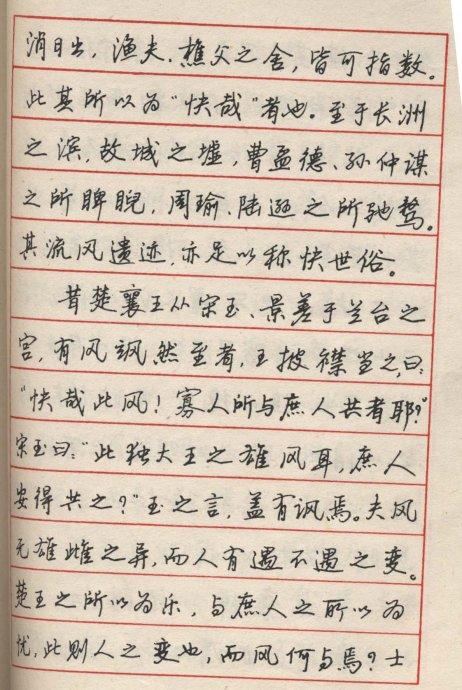 消日出，渔夫、樵父之舍，皆可指数。
此其所以为“快哉”者也。至于长洲
之滨，故城之墟，曹孟德、孙仲谋
之所睥睨，周瑜、陆逊之所驰骛。
其流风遗迹，亦足以称快世俗。
昔楚襄王从宋玉、景差于兰台之
宫，有风飒然至者，王披襟当之，曰：
“快哉此风！寡人所与庶人共者耶？”
宋玉曰：“此独大王之雄风耳，庶人
安得共之？”玉之言，盖有讽焉。夫风
无雄雌之异，而人有遇不遇之变。
楚王之所以为乐，与庶人之所以为
忧，此则人之变也，而风何与焉？士